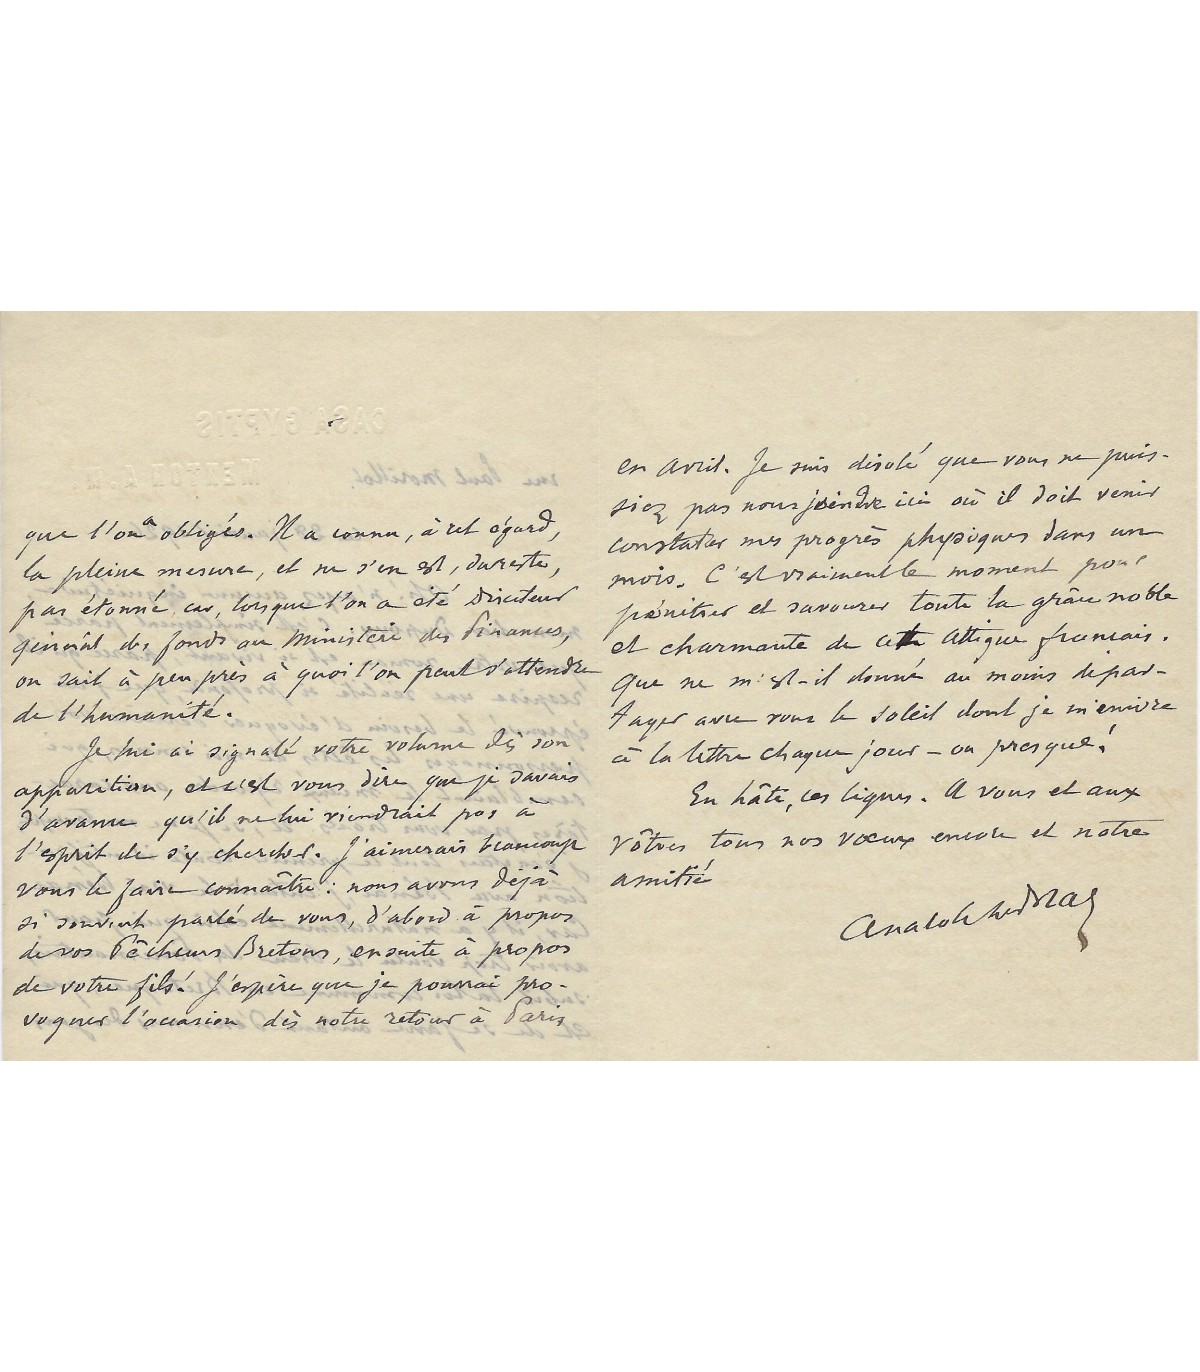 CASA GYPTIS
MENTON A.M.
que l'on a obligés. Il a connu, à cet égard,
la pleine mesure, et ne s'en est, du reste,
pas étonné car, lorsque l'on a été Directeur
général des fonds au Ministère des Finances,
on sait à peu près à quoi l'on peut s'attendre
de l'humanité.
Je lui ai signalé votre volume dès son
apparition, et c'est vous dire que je savais
d'avance qu'il ne lui viendrait pas à
l'esprit de s'y chercher. J'aimerais beaucoup
vous le faire connaître : nous avons déjà
si souvent parlé de vous, d'abord à propos
de vos Pêcheurs Bretons, ensuite à propos
de votre fils. J'espère que je pourrai pro-
voquer l'occasion dès notre retour à Paris
en Avril. Je suis désolé que vous ne puis-
siez pas nous joindre ici où il doit venir
constater mes progrès physiques dans un
mois. C'est vraiment le moment pour
pénétrer et savourer toute la grâce noble
et charmante de cette Attique français.
Que ne m'est-il donné au moins de par-
tager avec vous le soleil dont je m'enivre
à la lettre chaque jour – ou presque !
En hâte, ces lignes. A vous et aux
vôtres tous nos vœux encore et notre
amitié
Anatole Le Braz